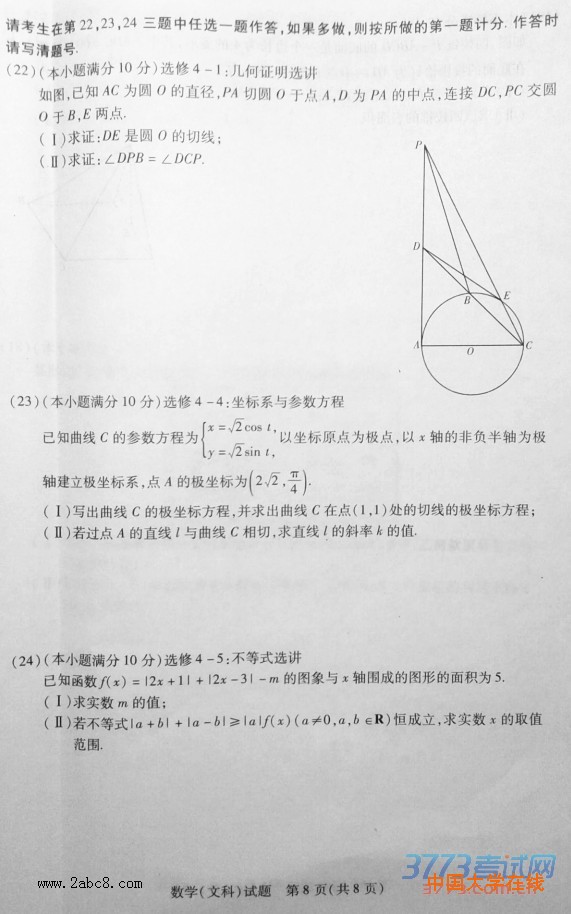 请考生在第 22,23,24 三题中任选一题作答,如果多做,则按所做的第一题计分. 作答时
请写清题号.
(22)(本小题满分 10 分)选修 4-1:几何证明选讲
如图,已知 AC 为圆 O 的直径,PA 切圆 O 于点 A,D 为 PA 的中点,连接 DC,PC 交圆
O 于 B,E 两点.
(Ⅰ)求证:DE 是圆 O 的切线;
(Ⅱ)求证:∠DPB=∠DCP.
P
D
B
E
A
O
C
(23)(本小题满分 10 分)选修 4-4:坐标系与参数方程
已知曲线 C 的参数方程为{x=√2cos t, y=√2sin t, 以坐标原点为极点,以 x 轴的非负半轴为极
轴建立极坐标系,点 A 的极坐标为(2√2,π/4).
(Ⅰ)写出曲线 C 的极坐标方程,并求出曲线 C 在点(1,1)处的切线的极坐标方程;
(Ⅱ)若过点 A 的直线 l 与曲线 C 相切,求直线 l 的斜率 k 的值.
(24)(本小题满分 10 分)选修 4-5:不等式选讲
已知函数 f(x)=|2x+1|+|2x-3|-m 的图象与 x 轴围成的图形的面积为 5.
(Ⅰ)求实数 m 的值;
(Ⅱ)若不等式|a+b|+|a-b|≥|a|f(x)(a≠0,a,b∈R)恒成立,求实数 x 的取值
范围.
3773考试网
中国大学在线
www.2abc8.com
数学(文科)试题 第 8 页(共 8 页)